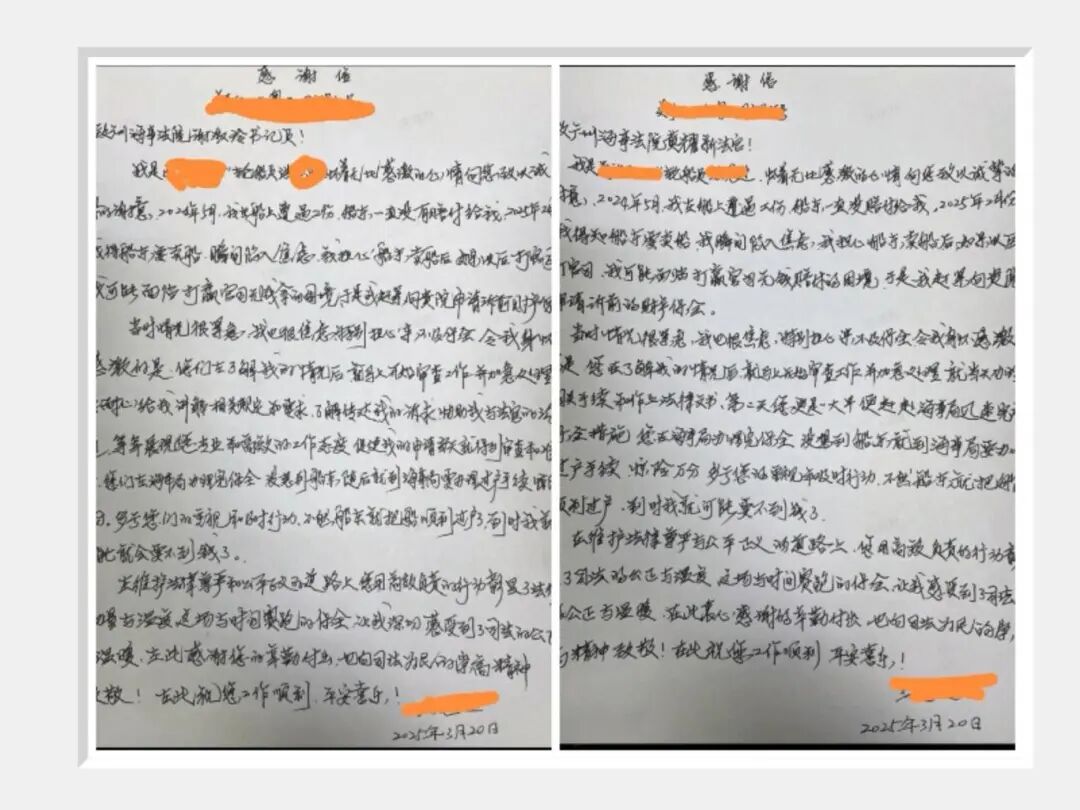 感谢信
州海事法院谢 书记员!
我是 轮船员 怀着无比感激的心情向您致以诚
的谢意。2024年5月,我在船上遭遇工伤,船东一直没有赔付给我,2025年2月
我得 船东要卖船,瞬间陷入焦虑,我担心船东卖船后 以后打官司
我可能面临打赢官司无钱拿的困境,于是我赶紧向贵院申请诉前财产保
当时情况很紧急,我也很焦虑,特别担心来不及保全,令我身
感激的是,您们在了解我的情况后,马上开始审查工作并加急处理
耐心给我讲解相关规定和要求,了解传达我的诉求,协助我与法官的
等等展现您专业和高效的工作态度,促使我的申请 天就得到审查和
您们在海事局办理完保全,没想到船东随后就到海事局要办理过户手续,
多亏您们的重视和及时行动,不然船东就把船顺利过户了,到时我
此就会要不到钱了。
在维护法律尊严和公平正义的道路上,您用高效负责的行动彰显了法
量与温度,这场与时间赛跑的保全,让我深切感受到了司法的公
温暖。在此感谢您的辛勤付出,也向司法为民的崇高精神
致敬!在此祝您工作顺利,平安喜乐!
2025年3月20日
感谢信
州海事法院 耀新法官!
我是 轮船员 怀着无比感激的心情向您致以诚挚的
意,2024年5月,我在船上遭遇工伤,船东一直没赔付给我,2025年2月份
我得知船东要卖船,我瞬间陷入焦虑,我担心船东卖船后如果以后
打官司,我可能面临打赢官司无钱赔付的困境,于是我赶紧向贵
申请诉前的财产保全。
当时情况很紧急,我也很焦虑,特别担心来不及保全,令我身 感激
是,您在了解我的情况后,就马上开始审查工作,并加急处理,就当天办
联手续和作上法律文书,第二天您更是一大早便赶赴海事局迅速
全措施,您在海事局办理完保全,没想到船东就到海事局要办
过户手续,惊险万分,多亏您的重视和及时行动,不然船东就把船
顺利过户,到时我就可能要不到钱了。
在维护法律尊严与公平正义的道路上,您用高效负责的行动彰
了司法的公正与温度,这场与时间赛跑的保全,让我感受到了司法
公正与温暖,在此衷心感谢您辛勤付出,也向司法为民的崇
精神致敬!在此祝您工作顺利,平安喜乐!
2025年3月20日